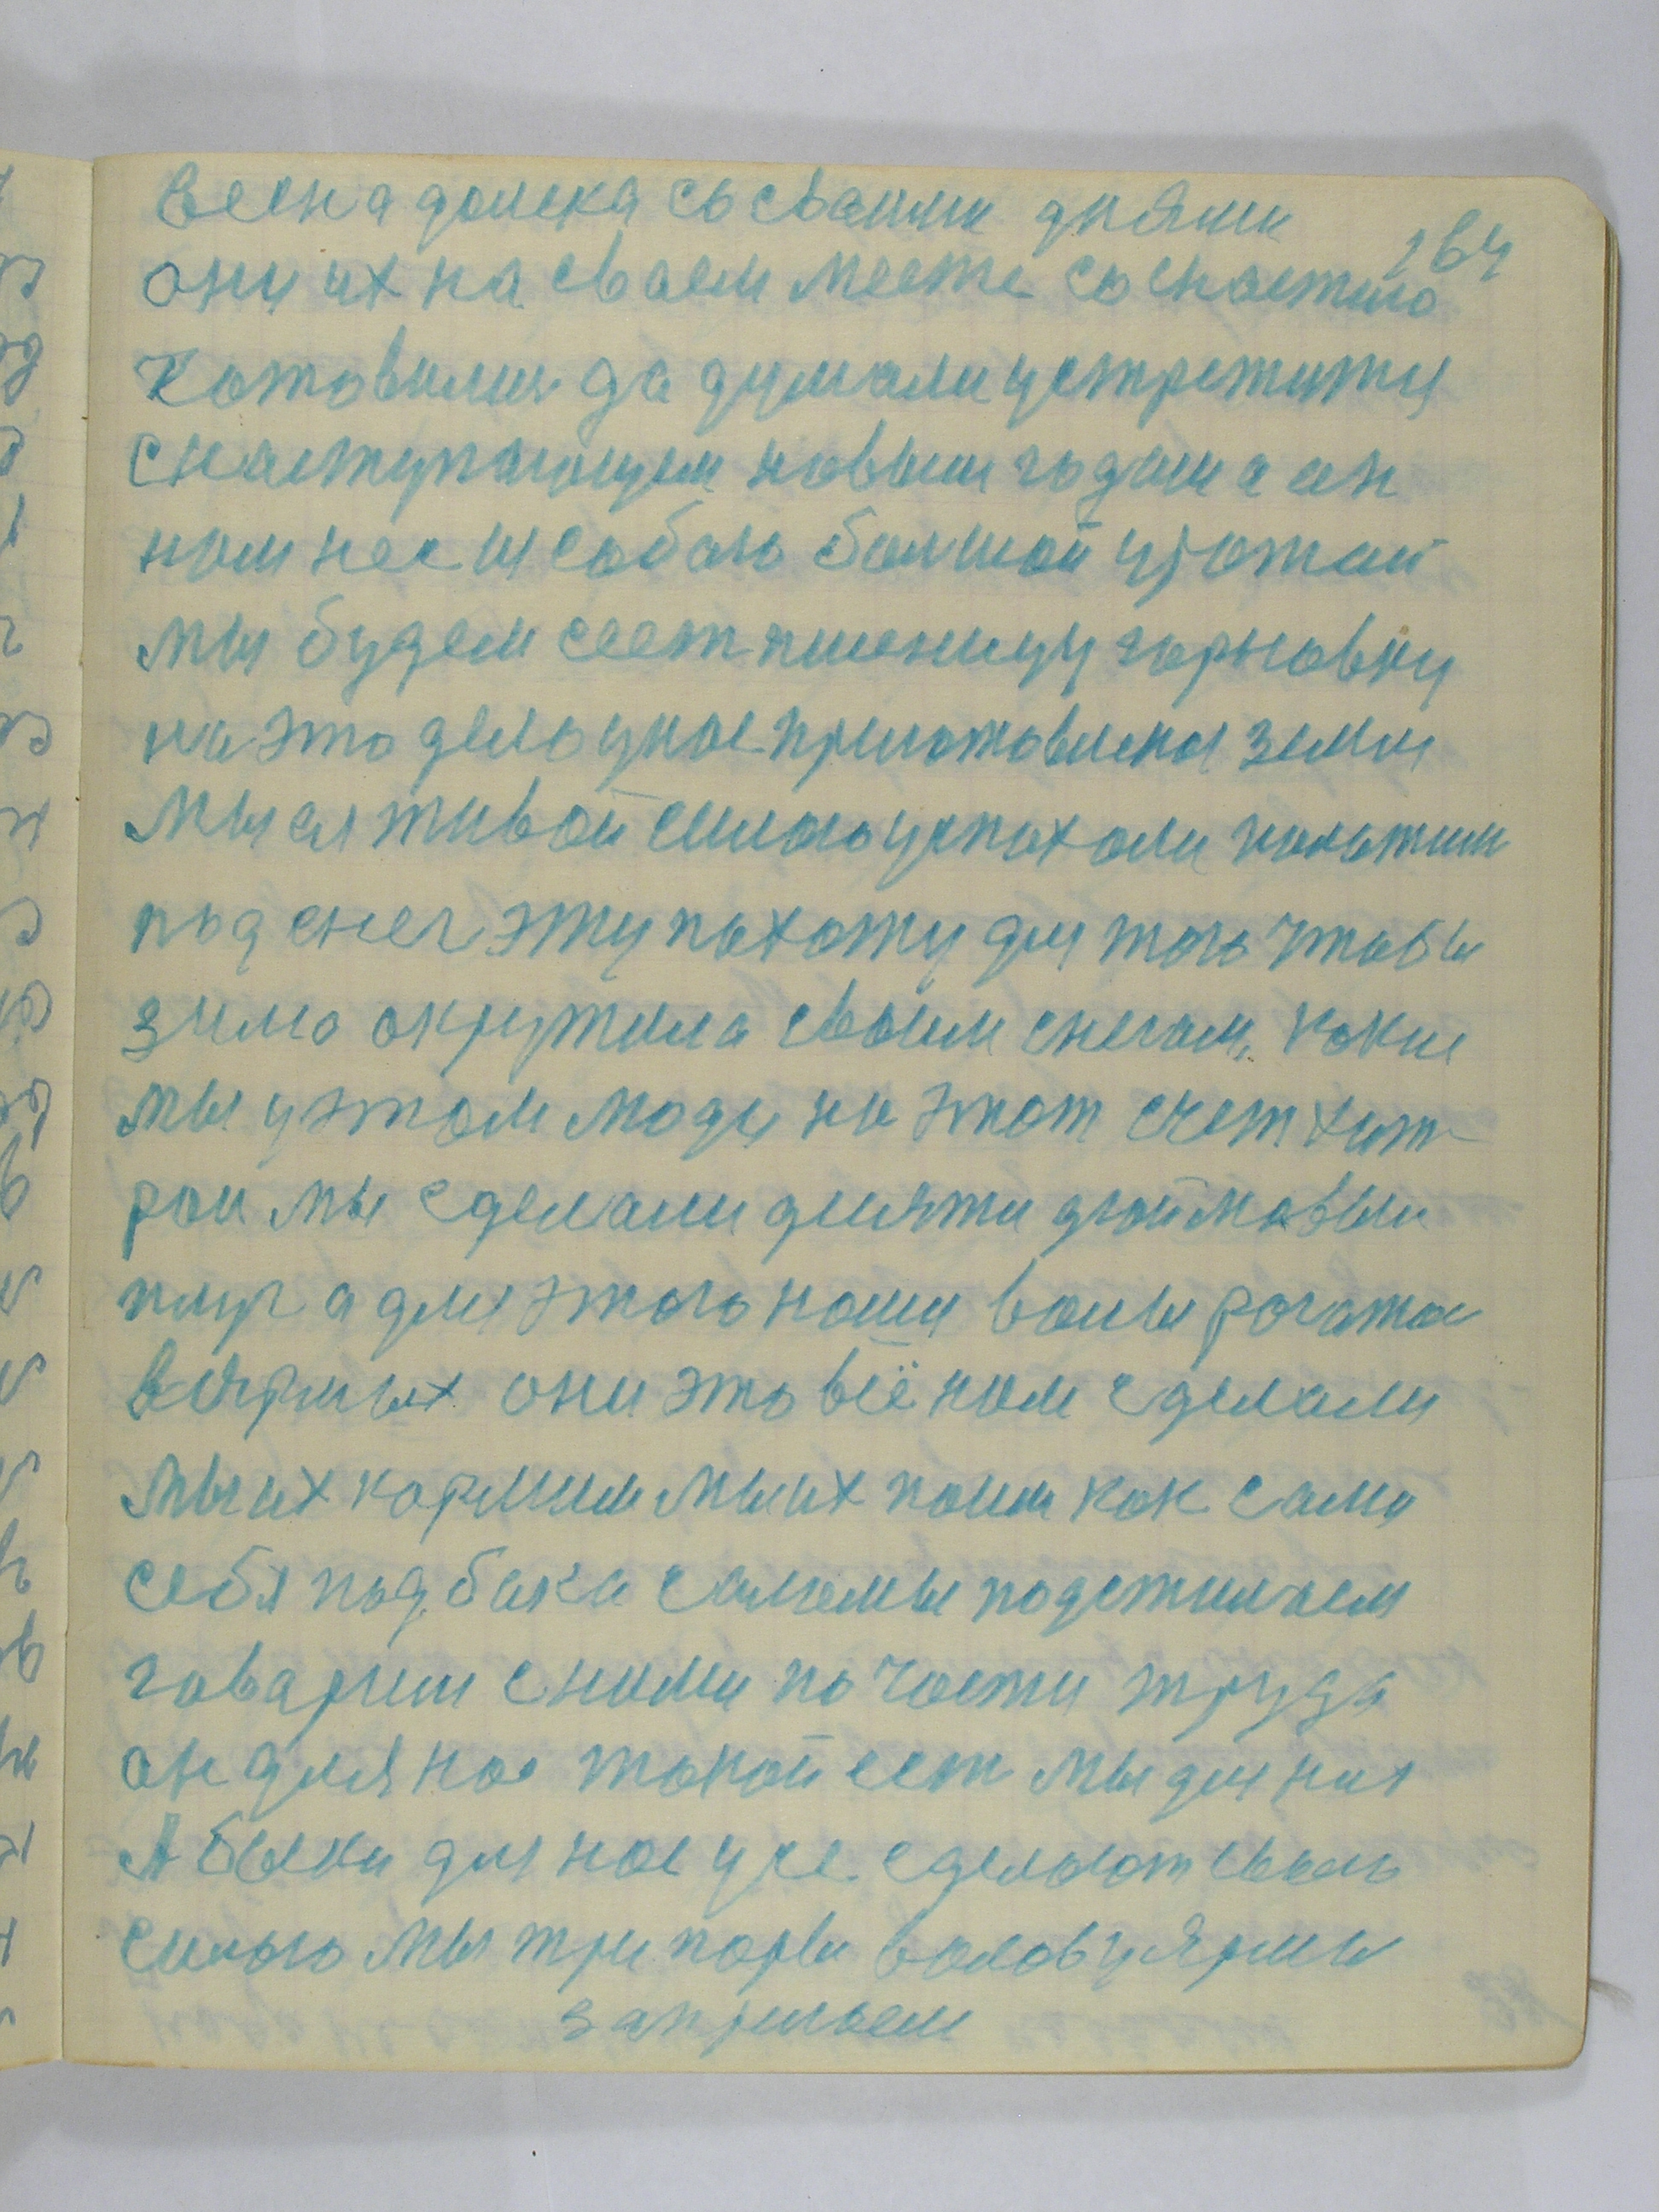 Весна далека со своими днями
164
они их на своем месте со снастию
Котовилис да думали устретити
с наступающем новым годам а он
нам нес из собою болшой урожай
мы будем сеет пшеницу гарновку
на это дело у нас приготовлена земля
Мы ея живой силою успахали
под снег эту пахоту для того чтобы
зима окружила своим снегам, какие
мы у этом люди на этот счет хит
рои мы сделали десяти дюймовыи
плуг а для этого наши волы рогатое
в ярмах они это всё нам сделали
мы их кормим мы их поим как сами
себя под бака саломы подстилаем
говарим с ними по части труда
он для нас такой ест мы для них
А быки для нас усе сделают своею
силою мы три пары волов у ярмы
запригаем